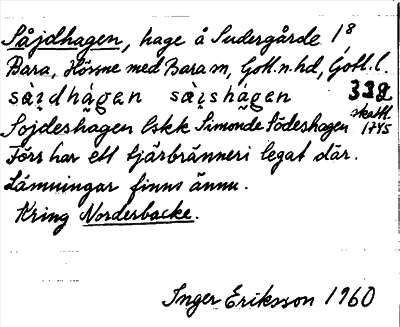 Såjdhagen, hage å Sudergårde 1⁸
Bara, Hörsne med Bara sn, Gotl. n. hd, Gotl. l.
sàɪdhágen sàɪshágen 332
Sojdeshagen lskk Simonde Södeshagen skattl. 1745
Förr har ett tjärbränneri legat där.
Lämningar finns ännu.
Kring Norderbacke.
Inger Eriksson 1960